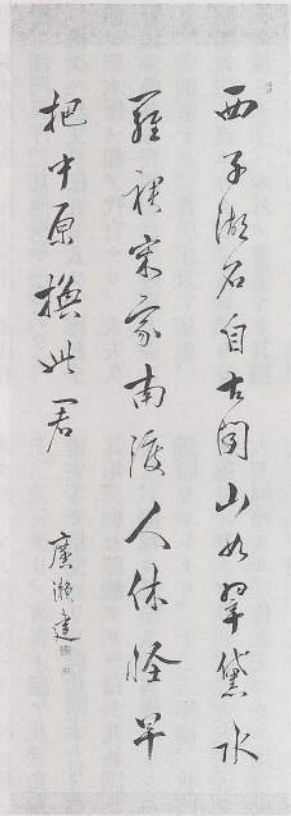 西子湖名自古聞山如翠黛水
羅裙宋家南渡人休怪早
把中原換此君
廣瀨建